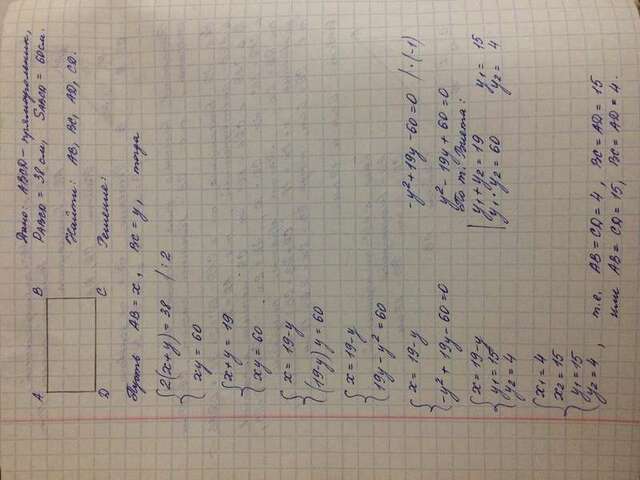 A B
D C
Дано: ABCD - прямоугольник,
PABCD = 38 см, SABCD = 60 см.
Найти: AB, BC, AD, CD.
Решение:
Пусть AB = x, BC = y, тогда
{ 2(x+y) = 38 / : 2
xy = 60
{ x+y = 19
xy = 60
{ x = 19-y
(19-y)y = 60
{ x = 19-y
19y - y² = 60
{ x = 19-y
-y² + 19y - 60 = 0
-y² + 19y - 60 = 0 / · (-1)
y² - 19y + 60 = 0
По т. Виета:
y₁ + y₂ = 19
y₁ · y₂ = 60
y₁ = 15
y₂ = 4
{ x = 19-y
y₁ = 15
y₂ = 4
{ x₁ = 4
x₂ = 15
y₁ = 15
y₂ = 4 , т.е. AB = CD = 4, BC = AD = 15
или AB = CD = 15, BC = AD = 4.